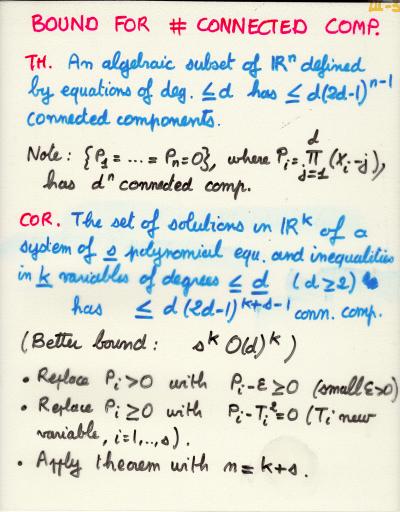 BOUND FOR # CONNECTED COMP.
TH. An algebraic subset of ℝⁿ defined
by equations of deg. ≤d has ≤ d(2d-1)ⁿ⁻¹
connected components.
Note: {P₁ = ... = Pₙ=0}, where Pᵢ= ∏ⱼ₌₁ᵈ (Xᵢ-j),
has dⁿ connected comp.
COR. The set of solutions in ℝᵏ of a
system of s polynomial equ. and inequalities
in k variables of degrees ≤ d (d≥2)
has ≤ d(2d-1)ᵏ⁺ˢ⁻¹ conn. comp.
(Better bound: sᵏ O(d)ᵏ)
• Replace Pᵢ>0 with Pᵢ-ε≥0 (small ε>0)
• Replace Pᵢ≥0 with Pᵢ-Tᵢ²=0 (Tᵢ new
variable, i=1,..,s).
• Apply theorem with n=k+s.